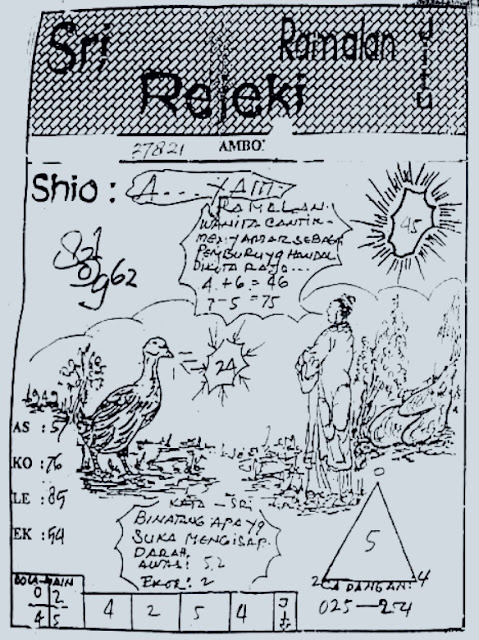 Sri
Ramalan
Rejeki
Jitu
27821
AMBO:
Shio : A....YAM.
RAMALAN:
WANITA CANTIK
SEBAGAI
PEMBURU YG HANDAL
DIKOTA RAJO...
4 + 6 = 46
7 - 5 = 75
45
62
24
AS : 57
KO : 76
LE : 85
EK : 54
KATA - SRI
BINATANG APA YG
SUKA MENGISAP
DARAH.
AWAS: 5,2
EKOR: 2
5
2
4
CADANGAN:
025—24
BOLA-MAIN
0 2
4 5
4 2 5 4 Jit